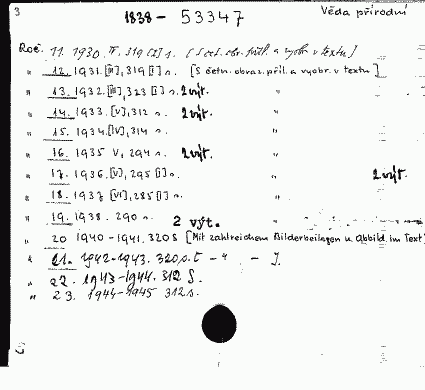 3 1838 - 53347 Věda přírodní
Roč. 11. 1930. IV, 319 [I] s. [S čet. obr. příl. a vyobr. v textu]
" 12. 1931. [III], 319 [I] s. [S četn. obraz. příl. a vyobr. v textu]
" 13. 1932. [III], 323 [I] s. 2 výt. "
" 14. 1933. [V], 312 s. 2 výt. "
" 15. 1934. [IV], 314 s. "
" 16. 1935 V, 294 s. 2 výt. "
" 17. 1936. [V], 295 [I] s. " 2 výt.
" 18. 1937 [VI], 285 [I] s. "
" 19. 1938. 290 s. 2 výt. "
" 20 1940-1941. 320 S [Mit zahlreichen Bilderbeilagen u. Abbild. im Text]
" 21. 1942-1943. 320 s. t - " -
" 22. 1943-1944. 312 S.
" 23. 1944-1945 312 s.